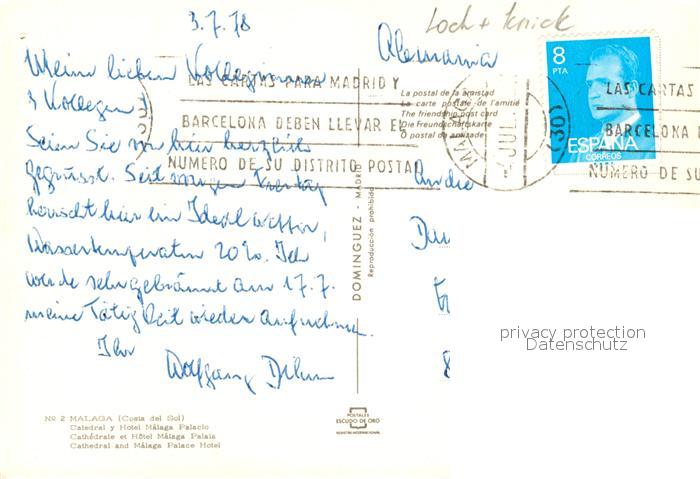 3.7.78
Loch + Knick
Alemania
Meine lieben Kolleginnen
+ Kollegen!
Seien Sie von hier herzlich
gegrüsst. Seit
herrscht hier ein Idealwetter,
Wassertemperatur 20%. Ich
werde sehr gebräunt am 17.7.
meine Tätigkeit wieder aufnehmen.
Ihr
Wolfgang
LAS CARTAS PARA MADRID Y
BARCELONA DEBEN LLEVAR EL
NUMERO DE SU DISTRITO POSTAL
La postal de la amistad
La carte postale de l'amitié
The friendship post card
Die Freundschaftskarte
O postal de amizade
8
PTA
ESPAÑA
CORREOS
JUL
LAS CARTAS
BARCELONA
NUMERO DE SU
An die
DOMINGUEZ - MADRID
Reproducción prohibida
privacy protection
Datenschutz
Nº 2 MALAGA (Costa del Sol)
Catedral y Hotel Málaga Palacio
Cathédrale et Hôtel Málaga Palais
Cathedral and Málaga Palace Hotel
POSTALES
ESCUDO DE ORO
REGISTRO INTERNACIONAL